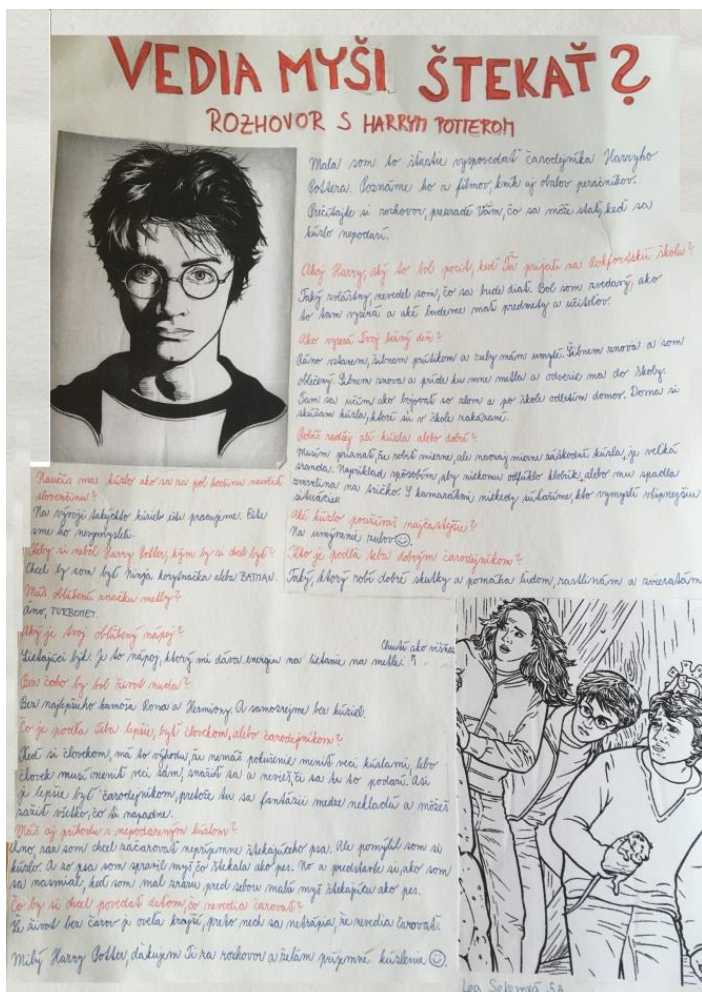 VEDIA MYŠI ŠTEKAŤ?
ROZHOVOR S HARRYM POTTEROM
Mala som to šťastie vyspovedať čarodejníka Harryho
Pottera. Poznáme ho z filmov, kníh aj obalov peračníkov.
Prečítajte si rozhovor, prezradí Vám, čo sa môže stať, keď sa
kúzlo nepodarí.
Ahoj Harry, aký to bol pocit, keď Ťa prijali na Rokfortskú školu?
Taký zvláštny, nevedel som, čo sa bude diať. Bol som zvedavý, ako
to tam vyzerá a aké budeme mať predmety a učiteľov.
Ako vyzerá Tvoj bežný deň?
Ráno vstanem, švihnem prútikom a zuby mám umyté. Švihnem znova a som
oblečený. Švihnem znova a príde ku mne metla a odvezie ma do školy.
Tam sa učím ako bojovať so zlom a po škole odletím domov. Doma si
skúšam kúzla, ktoré sú v škole zakázané.
Robíš radšej zlé kúzla alebo dobré?
Musím priznať, že robiť mierne, ale naozaj mierne záškodné kúzla, je veľká
sranda. Napríklad spôsobím, aby niekomu odfúklo klobúk, alebo mu spadla
zmrzlina na tričko. S kamarátmi niekedy súťažíme, kto vymyslí vtipnejšiu
situáciu.
Aké kúzlo používaš najčastejšie?
Na umývanie zubov☺.
Kto je podľa teba dobrým čarodejníkom?
Taký, ktorý robí dobré skutky a pomáha ľuďom, rastlinám a zvieratám.
Naučíš ma kúzlo ako sa za pol hodinu naučiť
slovenčinu?
Na vývoji takýchto kúziel ešte pracujeme. Ešte
sme ho nevymysleli.
Keby si nebol Harry Potter, kým by si chcel byť?
Chcel by som byť Ninja korytnačka alebo BATMAN.
Máš obľúbenú značku metly?
Áno, TURBOMET.
Aký je tvoj obľúbený nápoj?
Chutí ako višňa
Lietajúci býk. Je to nápoj, ktorý mi dáva energiu na lietanie na metle.
Bez čoho by bol život nuda?
Bez najlepšieho kamoša Rona a Hermiony. A samozrejme bez kúziel.
Čo je podľa Teba lepšie, byť človekom, alebo čarodejníkom?
Keď si človekom, má to výhodu, že nemáš pokušenie meniť veci kúzlami, lebo
človek musí meniť veci sám, snažiť sa a nevieš, či sa ti to podarí. Asi
je lepšie byť čarodejníkom, pretože tu sa fantázii medze nekladú a môžeš
zažiť všetko, čo ti napadne.
Máš aj príhodu s nepodareným kúzlom?
Áno, raz som chcel začarovať nepríjemne štekajúceho psa. Ale pomýlil som si
kúzlo. A zo psa som spravil myš čo štekala ako pes. No a predstavte si, ako som
sa nasmial, keď som mal zrazu pred sebou malú myš štekajúcu ako pes.
Čo by si chcel povedať deťom, čo nevedia čarovať?
Že život bez čarov je oveľa krajší, preto nech sa netrápia, že nevedia čarovať.
Milý Harry Potter, ďakujem Ti za rozhovor a želám príjemné kúzlenie ☺.
Lea 5.A